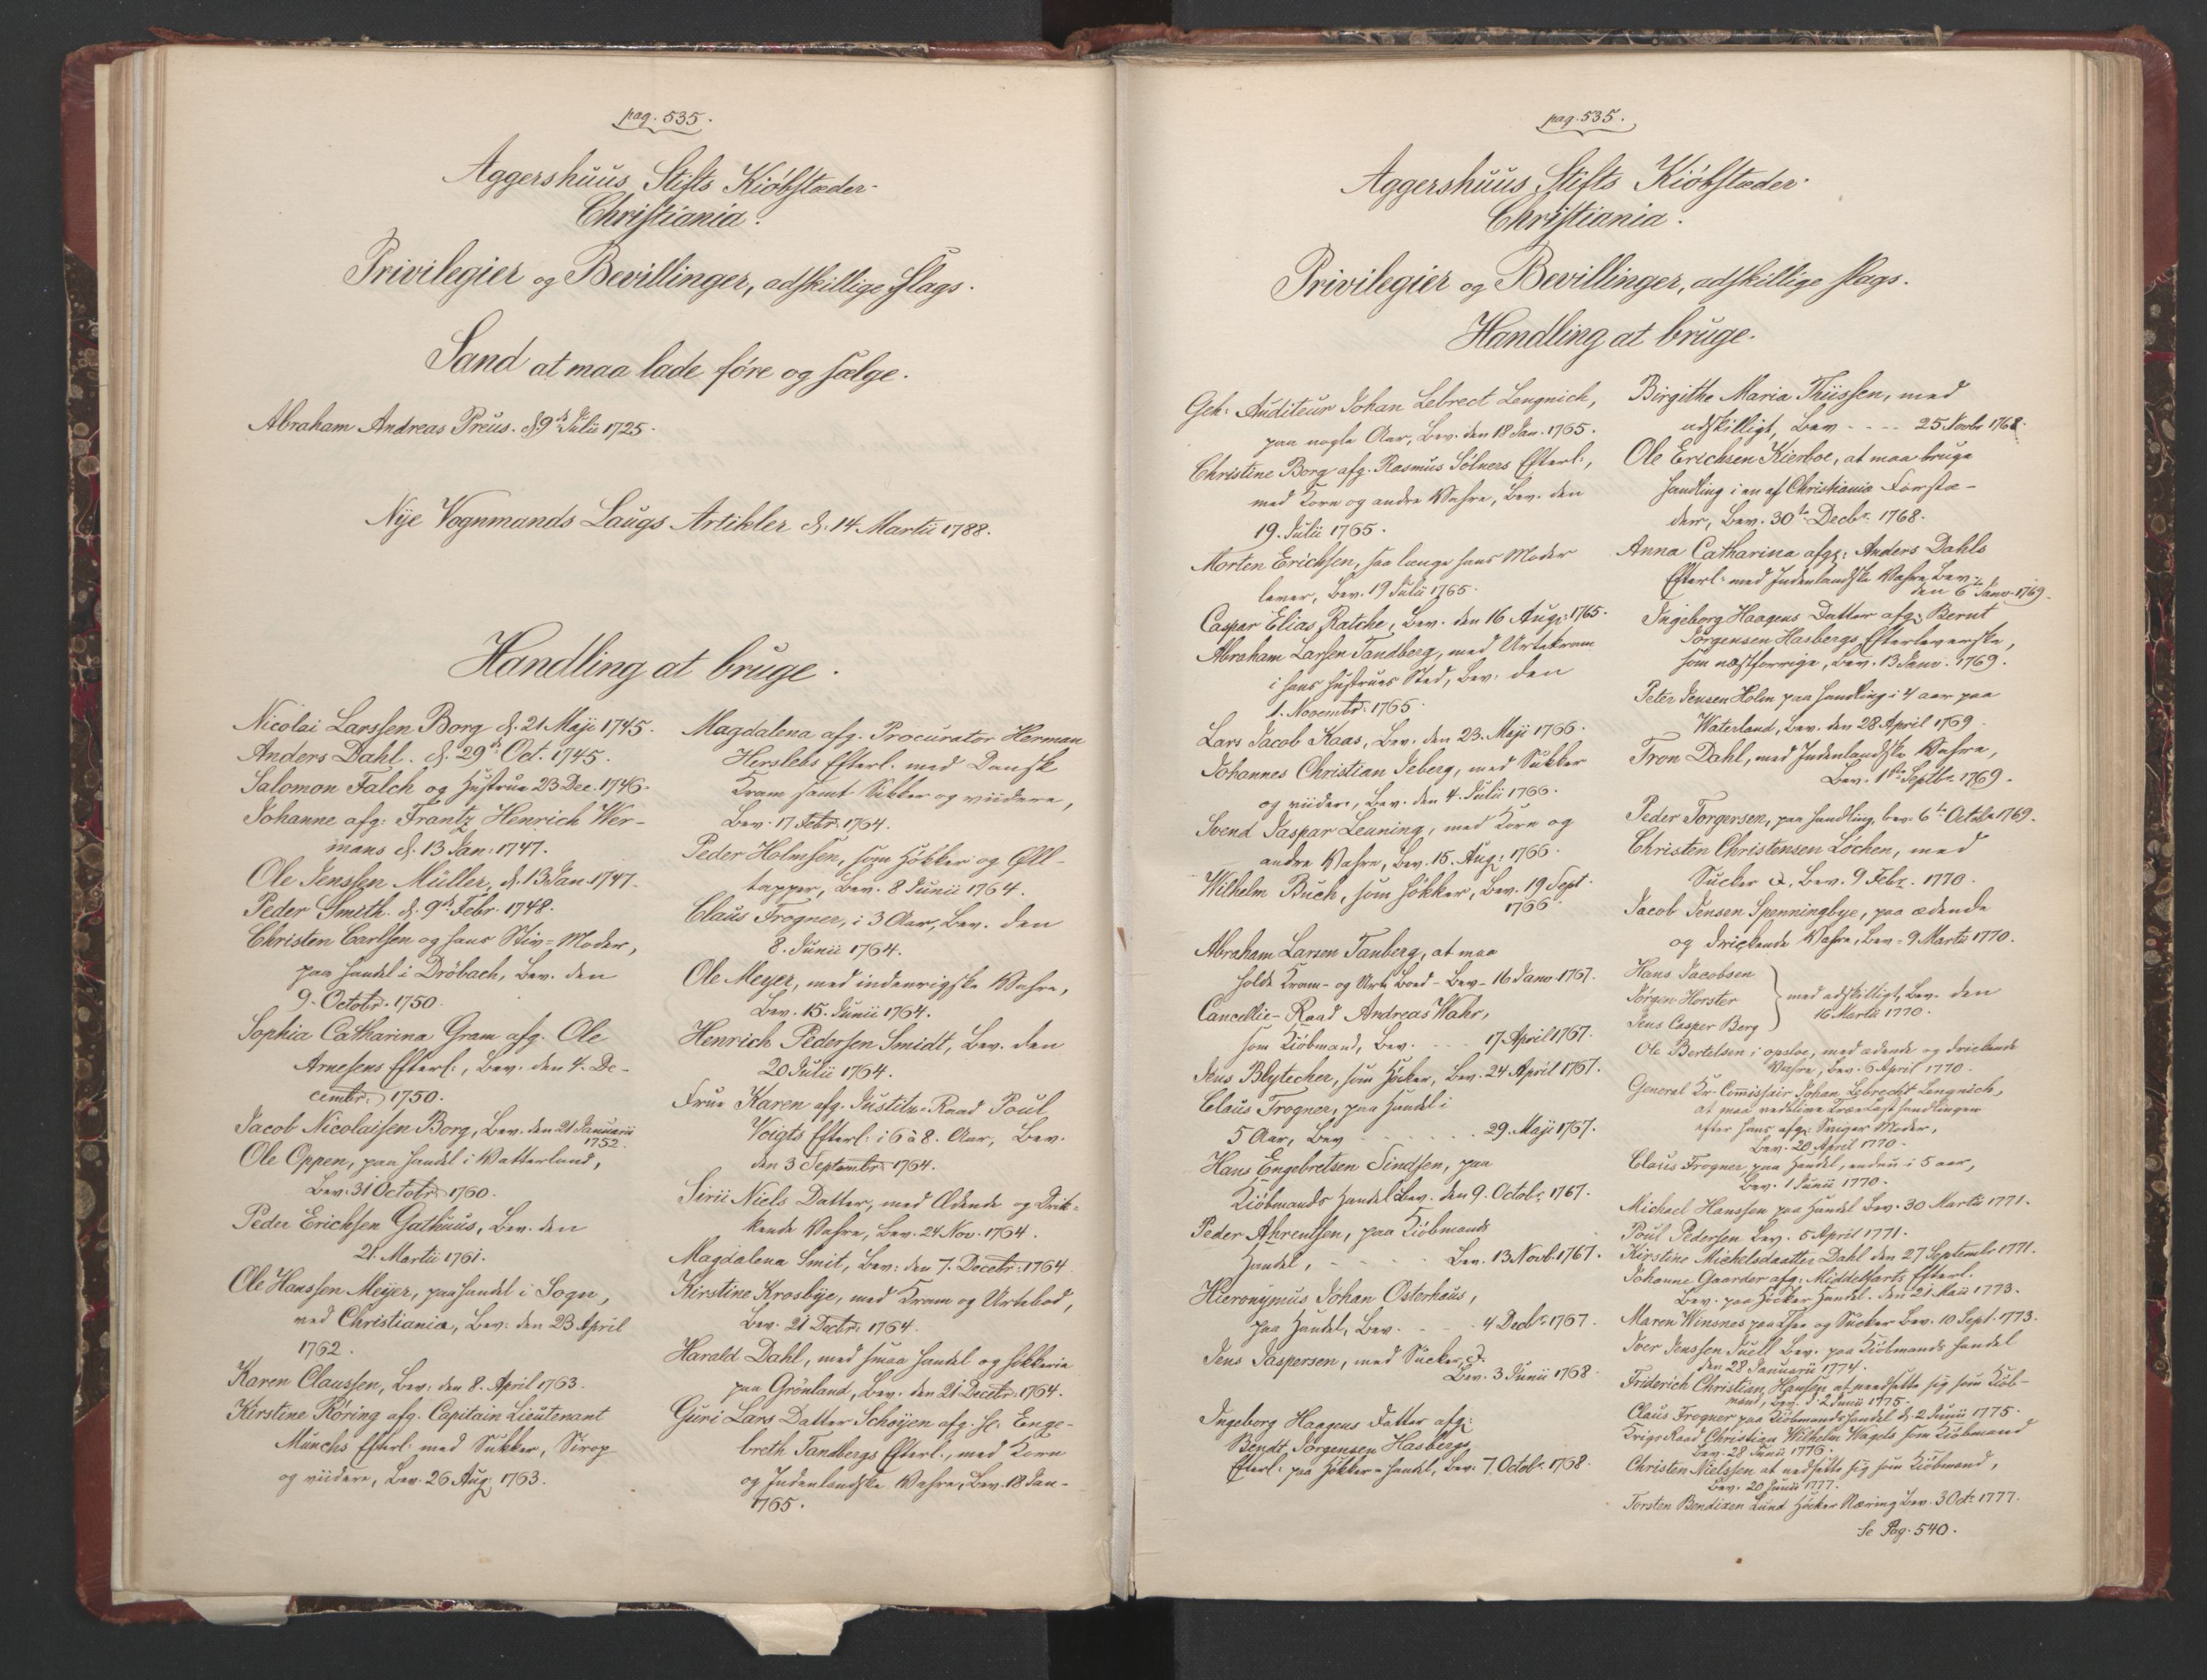 pag. 535.
Aggershuus Stifts Kiöbstæder.
Christiania.
Privilegier og Bevillinger, adskillige Slags.
Sand at maa lade före og sælge.
Abraham Andreas Preus. d. 9de Julii 1725.
Nye Vognmands Laugs Artikler d. 14 Martii 1788.
Handling at bruge.
Nicolai Larssen Borg d. 21 Maji 1745.
Anders Dahl. d. 29de Oct. 1745.
Salomon Falch og Hustrue 23 Dec. 1746.
Johanne afg: Frantz Henrich Wer-
mans d. 13 Jan: 1747.
Ole Jenssen Müller, d. 13 Jan 1747.
Peder Smith. d. 9de Febr. 1748.
Christen Carlsen og hans Stiv-Moder,
paa handel i Dröbach, Bev. den
9. Octobr. 1750.
Sophia Catharina Gram afg. Ole
Arnesens Efterl:, Bev. den 4. De-
cembr: 1750.
Jacob Nicolaisen Borg, Bev. den 21 Januarii
1752.
Ole Oppen, paa handel i Watterland,
Bev. 31 Octobr. 1760.
Peder Erichsen Gathuus, Bev. den
21. Martii 1761.
Ole Hanssen Meyer, paa handel i Sogn,
ved Christiania, Bev: den 23 April
1762.
Karen Claussen, Bev: den 8. April 1763.
Kirstine Röring afg. Capitain Lieutenant
Munchs Efterl: med Sukker, Sirop
og viidere, Bev. 26 Aug. 1763.
Magdalena afg. Procurator Herman
Herslebs Efterl. med Dansk
Kram samt Sukker og viidere,
Bev. 17 Febr. 1764.
Peder Holmsen, som Höker og Öll-
tapper, Bev. 8 Junii 1764.
Claus Frogner, i 3 Aar, Bev. den
8. Junii 1764.
Ole Meyer, med indenrigske Vahre,
Bev. 15. Junii 1764.
Henrich Pedersen Smidt, Bev. den
20 Julii 1764.
Frue Karen afg. Justitz-Raad Poul
Voigts Efterl: i 6 à 8. Aar, Bev.
den 3 Septembr. 1764.
Sirii Niels Datter, med Ædende og Drik-
kende Vahre, Bev. 24 Nov. 1764.
Magdalena Smit, Bev: den 7. Decebr: 1764.
Kirstine Krosbye, med Kram og Urtebod,
Bev. 21 Decbr. 1764.
Harald Dahl, med smaa handel og hökkerie
paa Grönland, Bev. den 21 Decebr. 1764.
Guri Lars Datter Schöyen afg. sl. Enge-
breth Tandbergs Efterl., med Korn
og Indenlandske Vahre, Bev. 18 Jan-
1765.
pag. 535.
Aggershuus Stifts Kiöbstæder.
Christiania.
Privilegier og Bevillinger, adskillige slags.
Handling at bruge.
Geh: Auditeur Johan Lebrect Lengnich,
paa nogle Aar, Bev. den 18 Jan. 1765.
Christine Borg afg. Rasmus Sölners Efterl:,
med Korn og andre Vahre, Bev. den
19. Julii 1765.
Morten Erichsen, saa længe hans Moder
lever, Bev. 19 Julii 1765.
Caspar Elias Ratche, Bev. den 16 Aug: 1765.
Abraham Larsen Tandberg, med Urtekram
i hans hustrues Sted, Bev. den
1. Novembr: 1765.
Lars Jacob Kaas, Bev. den 23. Maji 1766.
Johannes Christian Seberg, med Sukker
og viidere, Bev. den 4. Julii 1766.
Svend Jaspar Leuning, med Korn og
andre Vahre, Bev. 15. Aug: 1766.
Wilhelm Buch, som hökker, Bev. 19 Sept.
1766.
Abraham Larsen Tanberg, at maa
holde Kram- og Urte Boed - Bev- 16 Janv 1767.
Cancellie-Raad Andreas Wahr,
som Kiöbmand, Bev. - - - 17 April 1767.
Jens Blytecher, som Höcker, Bev. 24 April 1767.
Claus Frogner, paa Handel i
5 Aar, Bev - - - 29. Maji 1767.
Hans Engebretsen Sindsen, paa
Kiöbmands Handel Bev. den 9. Octob: 1767.
Peder Ahrentsen, paa Kiöbmands
Handel, - - - Bev. 13 Novb. 1767.
Hieronymus Johan Osterhaus,
paa Handel, Bev. - - - 4 Decbr 1767.
Jens Jaspersen, med Sucker, &.
Bev. 3 Junii 1768.
Ingeborg Haagens Datter afg:
Bendt Jörgensen Hasbergs
Efterl: paa hökker-Handel, Bev. 7. Octob. 1768.
Birgithe Maria Thüssen, med
adskilligt, Bev - - - 25 Novbr 1768.
Ole Erichsen Kierboe, at maa bruge
handling i en af Christiania Forstæ-
der, Bev. 30te Decbr. 1768.
Anna Catharina afg: Anders Dahls
Efterl: med Indenlandske Vahre, Bev.
den 6te Janv. 1769.
Ingeborg Haagens Datter afg: Bernt
Jörgensen Hasbergs Efterleverske,
som næstforrige, Bev. 13 Janv. 1769.
Peter Jensen Holm paa handling i 4 aar paa
Waterland, Bev. den 28 April 1769.
Tron Dahl, med Indenlandske Vahre,
Bev. 1ste Septbr 1769.
Peder Torgersen, paa handling, bev. 6te Octobr 1769.
Christen Christensen Löchen, med
Sucker &, Bev. 9 Febr. 1770.
Jacob Jensen Spenningbye, paa ædende
og drickende Vahre, Bev- 9 Martii 1770.
Hans Jacobsen
Jörgen Horster
Jens Casper Berg
med adskilligt, Bev. den
16 Martii 1770.
Ole Bertelsen i opsloe, med ædende og drickende
Vahre, Bev. 6 April 1770.
General Kr-Commissair Johan Lebrecht Lengnich,
at maa vedblive Trælast handlingen
efter hans afg: Sviger Moder,
Bev. 20 April 1770.
Claus Frogner, paa Handel, endnu i 5 aar,
Bev. 1 Junii 1770.
Michael Hanssen paa Handel Bev. 30 Martii 1771.
Poul Pedersen Bev. 5 April 1771.
Kirstine Michelsdaatter Dahl den 27 Septembr 1771.
Johanne Gaarder afg: Middelfarts Efterl.
Bev. paa Höcker Handel. den 21 Maii 1773.
Maren Winsnes paa Thee og Sucker Bev. 10 Sept. 1773.
Iver Jenssen Juell Bev. paa Kiöbmands Handel
den 28 Januarii 1774.
Friderich Christian Hansen at needsætte sig som Kiöb-
mand, Bev. d. 2 Junii 1775.
Claus Frogner paa Kiöbmandshandel d. 2 Junii 1775.
Krigs Raad Christian Wilhelm Wagels som Kiöbmand
Bev. 28 Junii 1776.
Christen Nielssen at nedsætte sig som Kiöbmand,
Bev. 20 Junii 1777.
Torsten Bendixen Lund Höcker Næring Bev. 3 Oct: 1777.
Se Pag. 540.